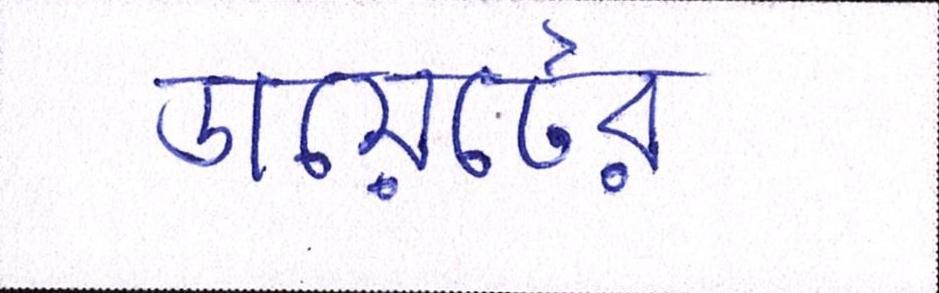 ডায়েটের